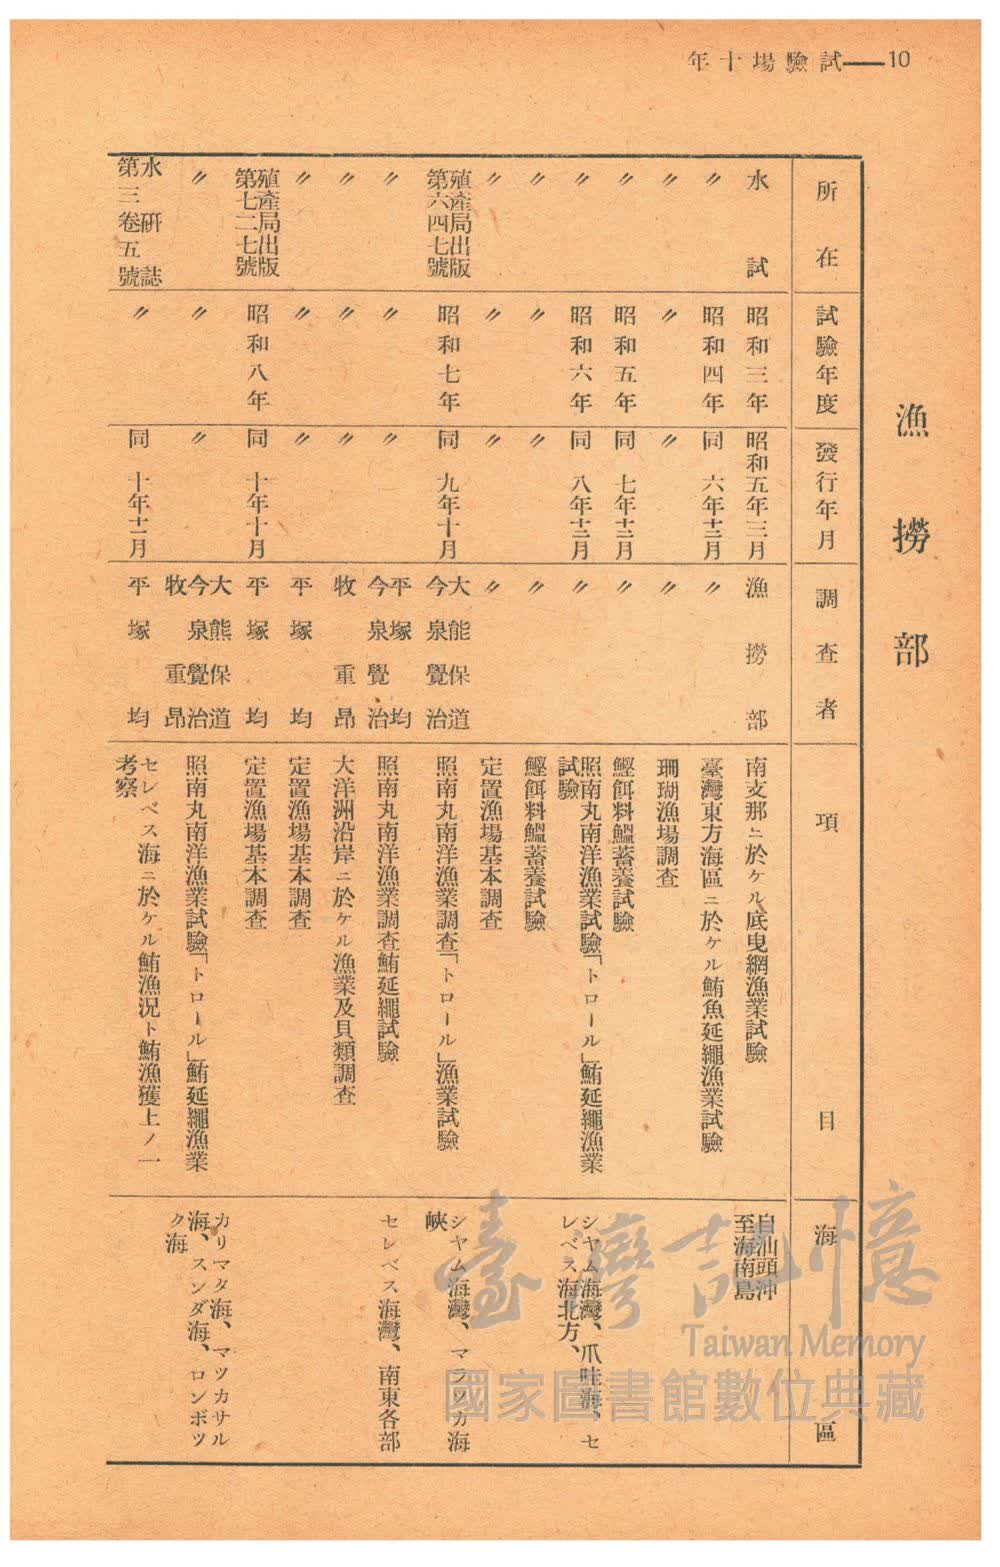 10——試驗場十年
漁撈部
所在 試驗年度 發行年月 調查者 項目 海區
水試 昭和三年 昭和五年三月 漁撈部 南支那ニ於ケル底曳網漁業試驗 自汕頭沖
至海南島
〃 昭和四年 同 六年十二月 〃 臺灣東方海區ニ於ケル鮪魚延繩漁業試驗
〃 〃 〃 〃 珊瑚漁場調查
〃 昭和五年 同 七年十二月 〃 鰹餌料鰮蓄養試驗
〃 昭和六年 同 八年十二月 〃 照南丸南洋漁業試驗「トロール」鮪延繩漁業
試驗
シヤム海灣、爪哇海、セ
レベス海北方、
〃 〃 〃 〃 鰹餌料鰮蓄養試驗
〃 〃 〃 〃 定置漁場基本調查
殖產局出版
第六四七號
昭和七年 同 九年十月
大熊保道
今泉覺治
照南丸南洋漁業調查「トロール」漁業試驗
シヤム海灣、マラツカ海
峽
〃 〃 〃
平塚均
今泉覺治
照南丸南洋漁業調查鮪延繩試驗 セレベス海灣、南東各部
〃 〃 〃 牧重昂 大洋洲沿岸ニ於ケル漁業及貝類調查
〃 〃 〃 平塚均 定置漁場基本調查
殖產局出版
第七二七號
昭和八年 同 十年十月 平塚均 定置漁場基本調查
〃 〃 〃
大熊保道
今泉覺治
牧重昂
照南丸南洋漁業試驗「トロール」鮪延繩漁業
カリマタ海、マツカサル
海、スンダ海、ロンボツ
ク海
水研誌
第三卷五號
〃 同 十年十二月 平塚均
セレベス海ニ於ケル鮪漁況ト鮪漁獲上ノ一
考察
臺灣記憶
Taiwan Memory
國家圖書館數位典藏